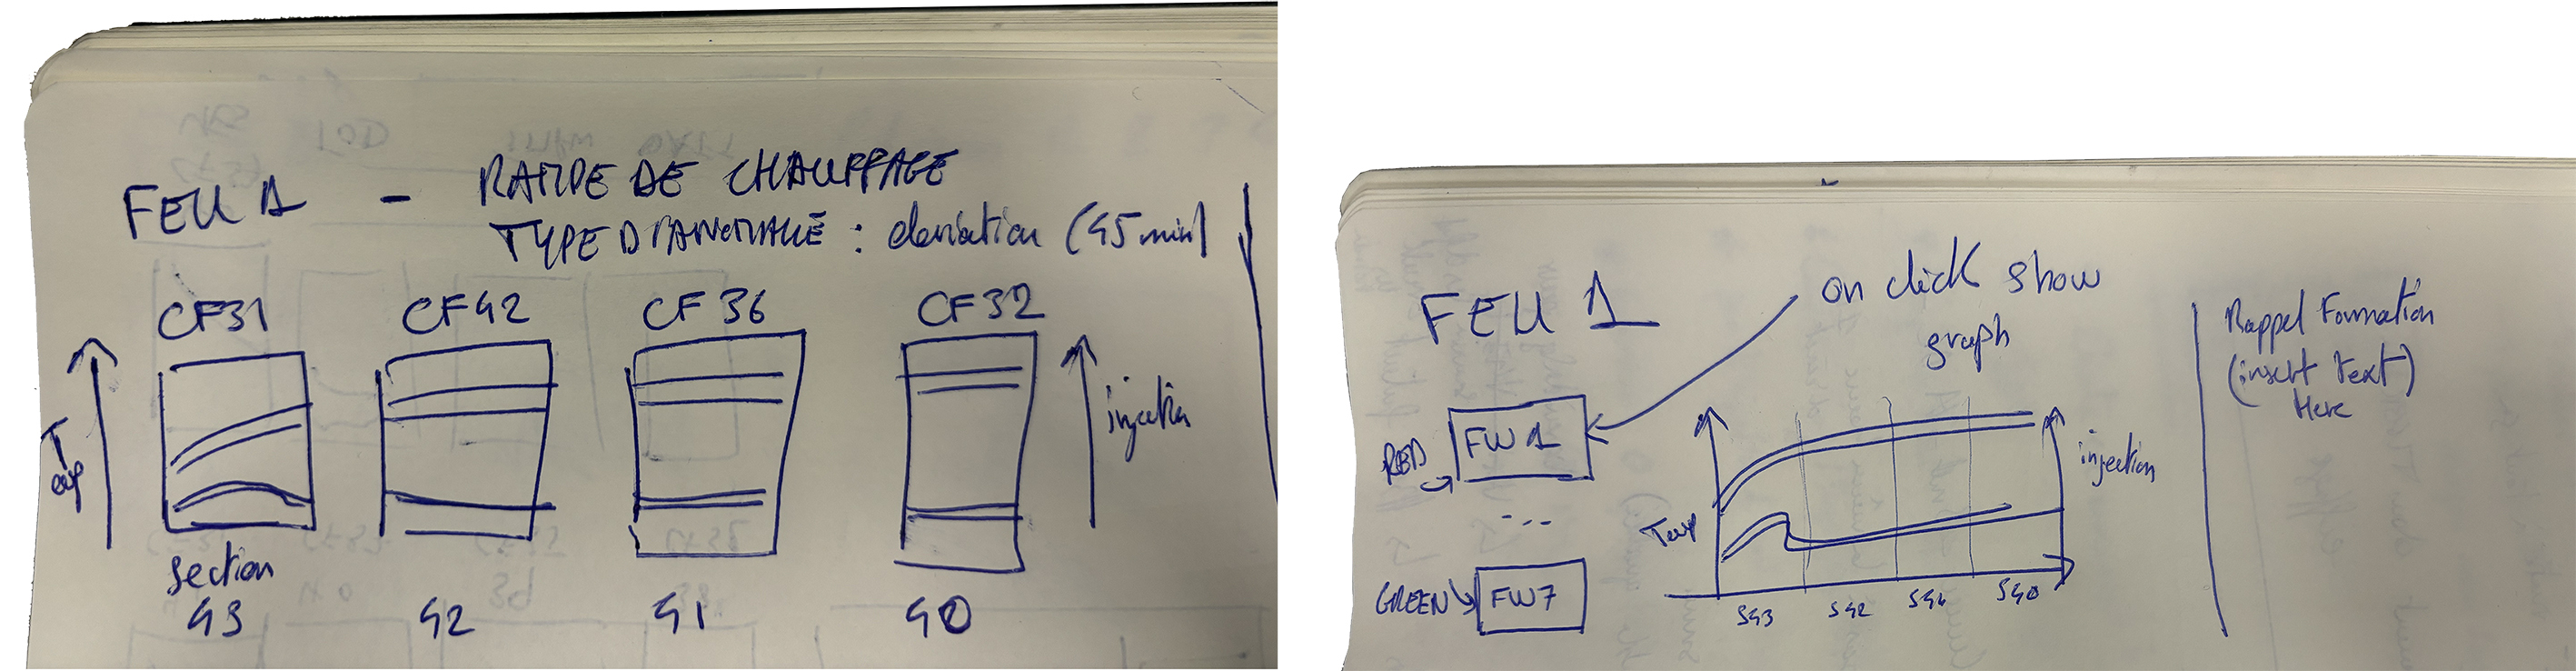 FEU 1 - RAMPE DE CHAUFFAGE
TYPE D'ANOMALIE : deviation (45 min)
CF31 CF42 CF36 CF32
Temp
injection
section
43 42 41 40
FEU 1
on click show
graph
Rappel Formation
(insert text)
Here
RED
FW1
...
GREEN
FW7
Temp
injection
S43 S42 S41 S40